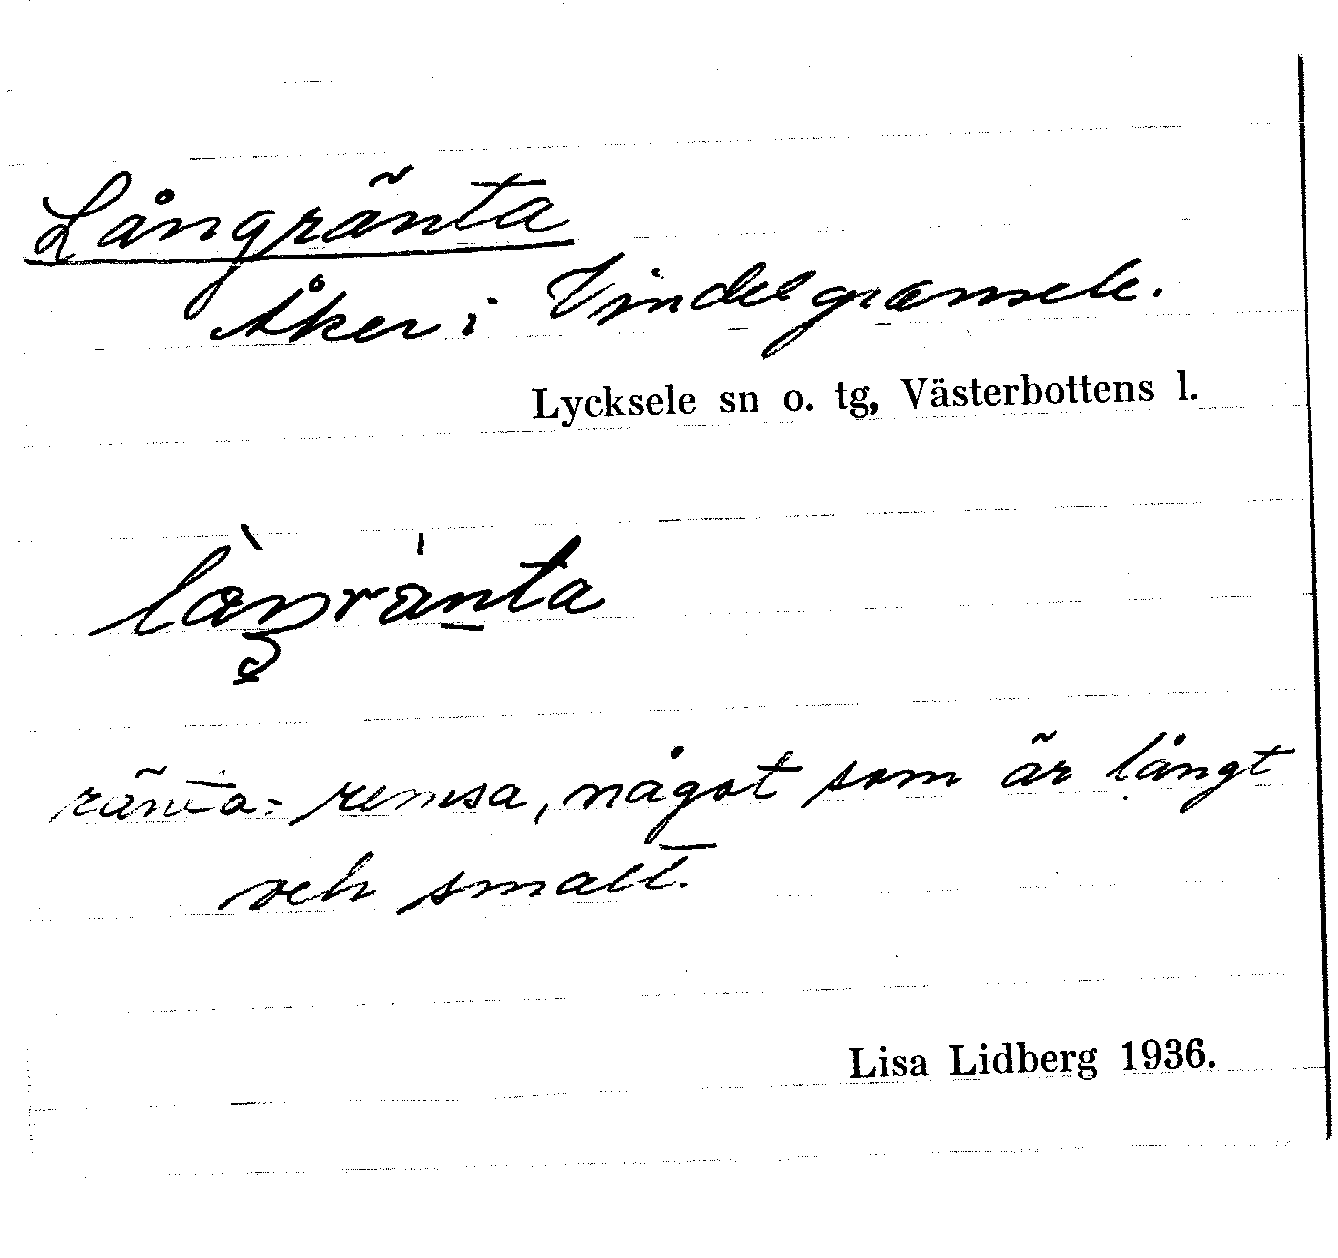 Långränta
Åker i Vindelgransele.
Lycksele sn o. tg, Västerbottens l.
ränta = remsa, något som är långt
och smalt.
Lisa Lidberg 1936.